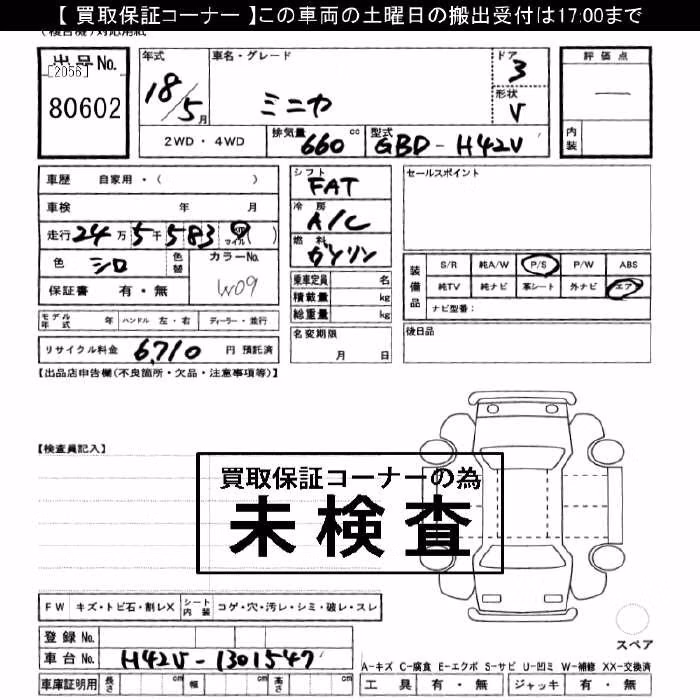 【 買取保証コーナー 】この車両の土曜日の搬出受付は17:00まで
（複合機）対応用紙
出品No.
[2056]
80602
年式
18/5月
車名・グレード
ミニカ
ドア
3
形状
V
2WD・4WD
排気量
660 cc
型式
GBD-H42V
評価点
内装
車歴 自家用・( )
車検 年 月
走行 24万5千583 km マイル ( )
色 シロ
色替
カラーNo.
W09
保証書 有・無
シフト
FAT
冷房
A/C
燃料
ガソリン
乗車定員 名
積載量 kg
総重量 kg
セールスポイント
装備品
S/R 純A/W P/S P/W ABS
純TV 純ナビ 革シート 外ナビ エア
ナビ型番：
モデル年式 年 ハンドル 左・右 ディーラー・並行
リサイクル料金 6,710 円 預託済
名変期限
月 日
後日品
【出品店申告欄(不良箇所・欠品・注意事項等)】
【検査員記入】
買取保証コーナーの為
未検査
FW キズ・トビ石・割レX シート内装 コゲ・穴・汚レ・シミ・破レ・スレ
登録No.
車台No. H42V-1301547
車庫証明用 長さ cm 幅 cm 高さ cm
スペア
A-キズ C-腐食 E-エクボ S-サビ U-凹ミ W-補修 XX-交換済
工具 有・無 ジャッキ 有・無